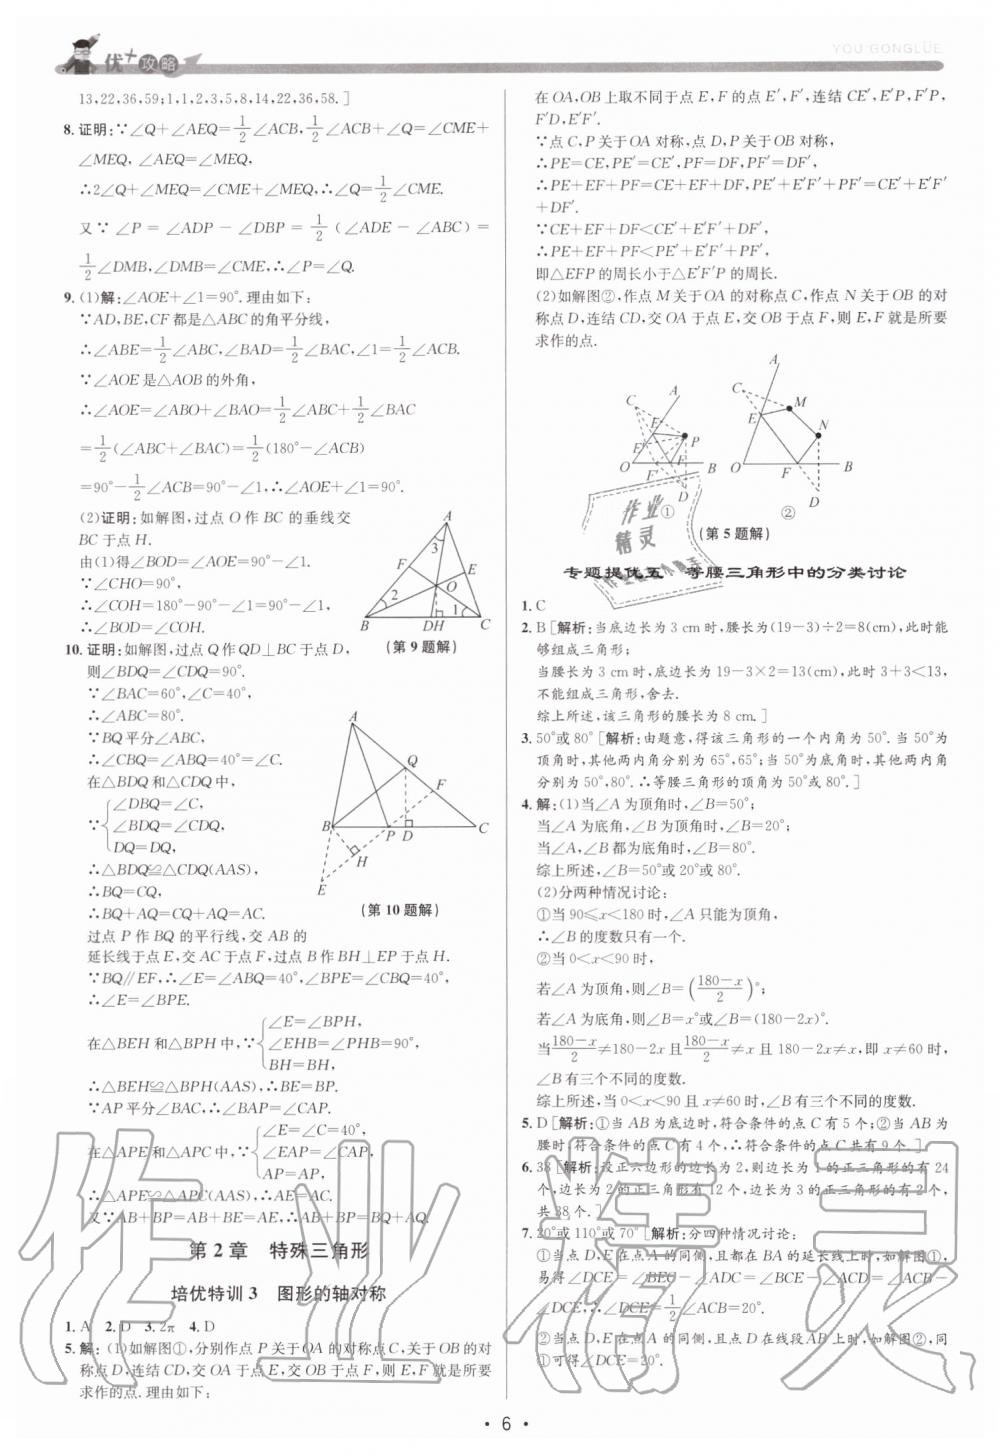 优+攻略
YOU GONGLÜE
13,22,36,59;1,1,2,3,5,8,14,22,36,58.]
8.证明:∵∠Q+∠AEQ=1/2∠ACB,1/2∠ACB+∠Q=∠CME+
∠MEQ,∠AEQ=∠MEQ,
∴2∠Q+∠MEQ=∠CME+∠MEQ,∴∠Q=1/2∠CME.
又∵∠P=∠ADP-∠DBP=1/2(∠ADE-∠ABC)=
1/2∠DMB,∠DMB=∠CME,∴∠P=∠Q.
9.(1)解:∠AOE+∠1=90°.理由如下:
∵AD,BE,CF都是△ABC的角平分线,
∴∠ABE=1/2∠ABC,∠BAD=1/2∠BAC,∠1=1/2∠ACB.
∵∠AOE是△AOB的外角,
∴∠AOE=∠ABO+∠BAO=1/2∠ABC+1/2∠BAC
=1/2(∠ABC+∠BAC)=1/2(180°-∠ACB)
=90°-1/2∠ACB=90°-∠1,∴∠AOE+∠1=90°.
(2)证明:如解图,过点O作BC的垂线交
BC于点H.
由(1)得∠BOD=∠AOE=90°-∠1.
∵∠CHO=90°,
∴∠COH=180°-90°-∠1=90°-∠1,
∴∠BOD=∠COH.
A
3
F
E
2
O
1
B
DH
C
(第9题解)
10.证明:如解图,过点Q作QD⊥BC于点D,
则∠BDQ=∠CDQ=90°.
∵∠BAC=60°,∠C=40°,
∴∠ABC=80°.
∵BQ平分∠ABC,
∴∠CBQ=∠ABQ=40°=∠C.
在△BDQ和△CDQ中,
∠DBQ=∠C,
∵{∠BDQ=∠CDQ,
DQ=DQ,
∴△BDQ≌△CDQ(AAS),
∴BQ=CQ,
∴BQ+AQ=CQ+AQ=AC.
A
Q
F
B
P
D
C
H
E
(第10题解)
过点P作BQ的平行线,交AB的
延长线于点E,交AC于点F,过点B作BH⊥EP于点H.
∵BQ∥EF,∴∠E=∠ABQ=40°,∠BPE=∠CBQ=40°,
∴∠E=∠BPE.
∠E=∠BPH,
在△BEH和△BPH中,∵{∠EHB=∠PHB=90°,
BH=BH,
∴△BEH≌△BPH(AAS),∴BE=BP.
∵AP平分∠BAC,∴∠BAP=∠CAP.
∠E=∠C=40°,
在△APE和△APC中,∵{∠EAP=∠CAP,
AP=AP,
∴△APE≌△APC(AAS),∴AE=AC.
又∵AB+BP=AB+BE=AE,∴AB+BP=BQ+AQ.
第2章 特殊三角形
培优特训3 图形的轴对称
1.A 2.D 3.2π 4.D
5.解:(1)如解图①,分别作点P关于OA的对称点C,关于OB的对
称点D,连结CD,交OA于点E,交OB于点F,则E,F就是所要
求作的点.理由如下:
在OA,OB上取不同于点E,F的点E′,F′,连结CE′,E′P,F′P,
F′D,E′F′.
∵点C,P关于OA对称,点D,P关于OB对称,
∴PE=CE,PE′=CE′,PF=DF,PF′=DF′,
∴PE+EF+PF=CE+EF+DF,PE′+E′F′+PF′=CE′+E′F′
+DF′.
∵CE+EF+DF<CE′+E′F′+DF′,
∴PE+EF+PF<PE′+E′F′+PF′,
即△EFP的周长小于△E′F′P的周长.
(2)如解图②,作点M关于OA的对称点C,作点N关于OB的对
称点D,连结CD,交OA于点E,交OB于点F,则E,F就是所要
求作的点.
A
C
E
E′
P
O
F′
F
B
D
①
A
C
M
E
N
O
F
B
D
②
(第5题解)
作业
精灵
专题提优五 等腰三角形中的分类讨论
1.C
2.B[解析:当底边长为3 cm时,腰长为(19-3)÷2=8(cm),此时能
够组成三角形;
当腰长为3 cm时,底边长为19-3×2=13(cm),此时3+3<13,
不能组成三角形,舍去.
综上所述,该三角形的腰长为8 cm.]
3.50°或80°[解析:由题意,得该三角形的一个内角为50°.当50°为
顶角时,其他两内角分别为65°,65°;当50°为底角时,其他两内角
分别为50°,80°.∴等腰三角形的顶角为50°或80°.]
4.解:(1)当∠A为顶角时,∠B=50°;
当∠A为底角,∠B为顶角时,∠B=20°;
当∠A,∠B都为底角时,∠B=80°.
综上所述,∠B=50°或20°或80°.
(2)分两种情况讨论:
①当90≤x<180时,∠A只能为顶角,
∴∠B的度数只有一个.
②当0<x<90时,
若∠A为顶角,则∠B=(180-x/2)°;
若∠A为底角,则∠B=x°或∠B=(180-2x)°.
当180-x/2≠180-2x且180-x/2≠x且180-2x≠x,即x≠60时,
∠B有三个不同的度数.
综上所述,当0<x<90且x≠60时,∠B有三个不同的度数.
5.D[解析:①当AB为底边时,符合条件的点C有5个;②当AB为
腰时,符合条件的点C有4个,∴符合条件的点C共有9个.]
6.38[解析:设正六边形的边长为2,则边长为1的正三角形的有24
个,边长为2的正三角形有12个,边长为3的正三角形的有2个,
共38个.]
7.20°或110°或70°[解析:分四种情况讨论:
①当点D,E在点A的同侧,且都在BA的延长线上时,如解图①,
易得∠DCE=∠BEC-∠ADC=∠BCE-∠ACD=∠ACB-
∠DCE,∴∠DCE=1/2∠ACB=20°.
②当点D,E在点A的同侧,且点D在线段AB上时,如解图②,同
①可得∠DCE=20°.
作业精灵
·6·